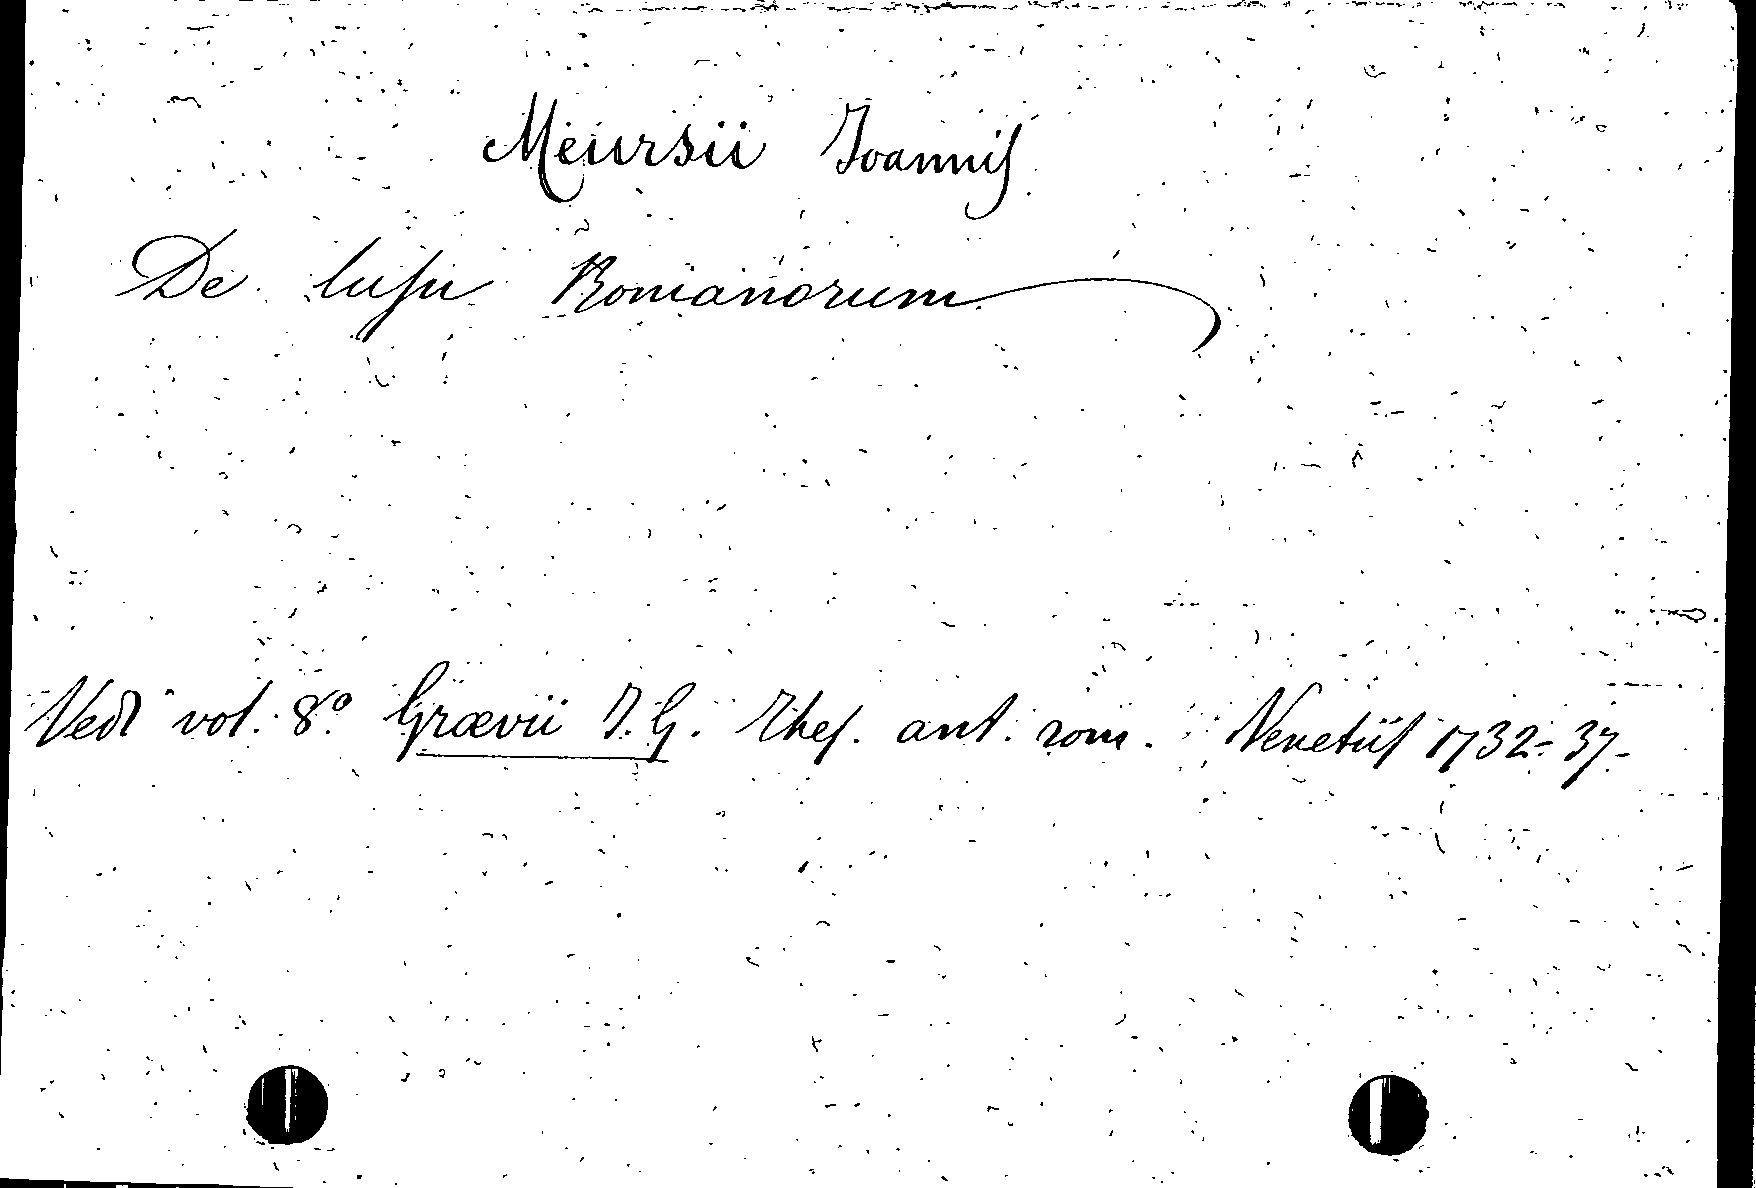 Meursii Joannis
De lusu Romanorum
Vedi vol. 8º Grævii J. G. Thes. ant. rom. Venetiis 1732-37-